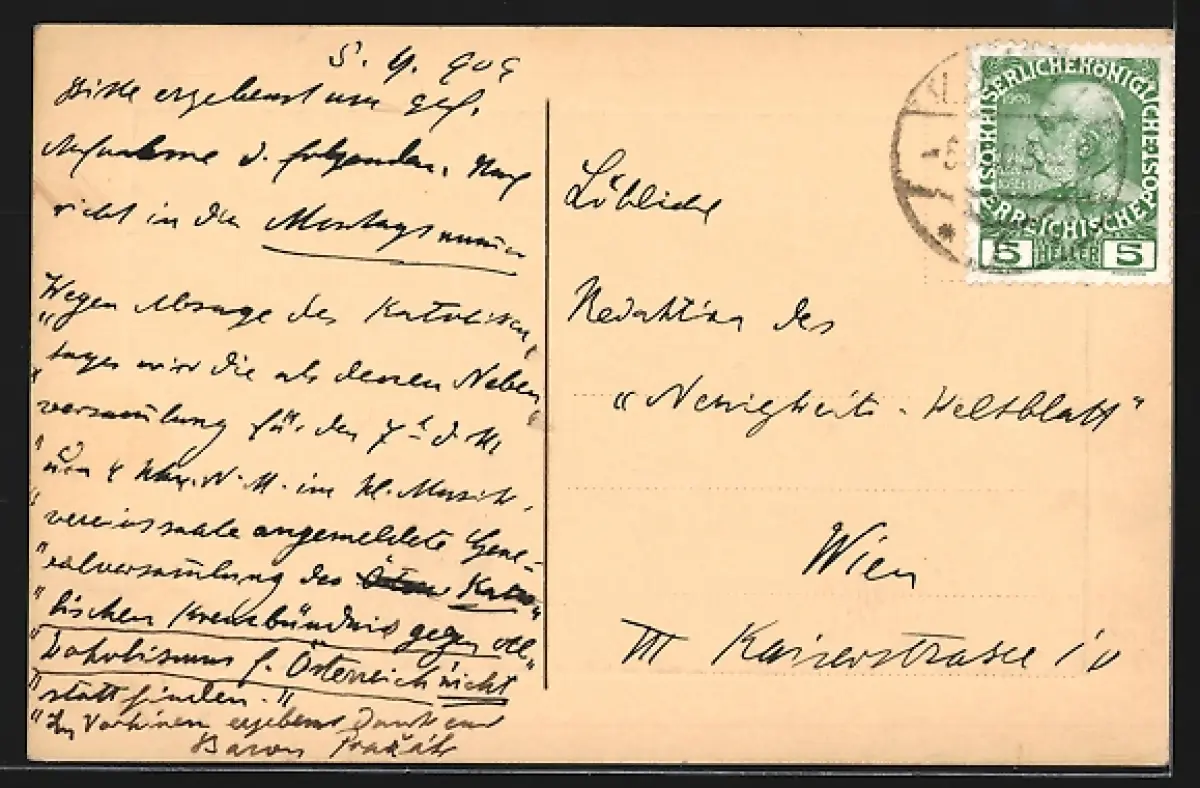 5. 9. 909
Bitte ergebenst um gef.
Aufnahme d. folgenden Nach
richt in der Montagsnummer
"Wegen Absage des Katholiken
"tages wird die als dessen Neben
versammlung für den 7t d. M.
"um 4 Uhr N. M. im kl. Musik
"vereinssaale angemeldete Gene-
"ralversammlung des Katho
"lischen Kreuzbündnis gegen Al
"koholismus f. Österreich nicht
"stattfinden."
"Im Vorhinein ergebenst Dank
Baron Pražák
Löbliche
Redaktion des
"Neuigkeits-Weltblatt"
Wien
III Kaiserstrasse 10
KAISERLICHE KÖNIGLICHE
ÖSTERREICHISCHE POST
1908
5 HELLER 5